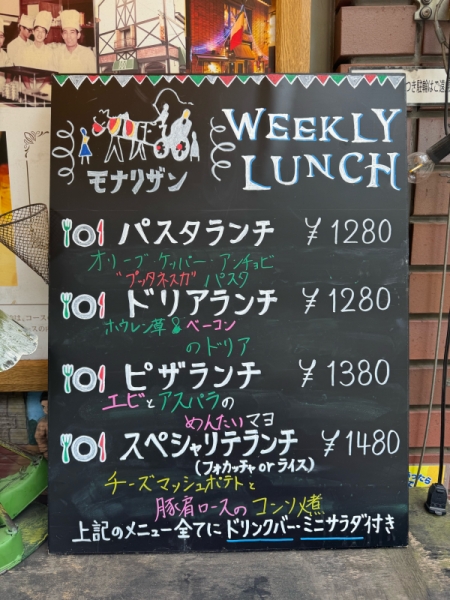 WEEKLY
LUNCH
モナリザン
パスタランチ ¥1280
オリーブ・ケッパー・アンチョビ
"プッタネスカ"パスタ
ドリアランチ ¥1280
ホウレン草&ベーコン
のドリア
ピザランチ ¥1380
エビとアスパラの
めんたいマヨ
スペシャリテランチ ¥1480
(フォカッチャorライス)
チーズマッシュポテトと
豚肩ロースのコンソメ煮
上記のメニュー全てにドリンクバー・ミニサラダ付き